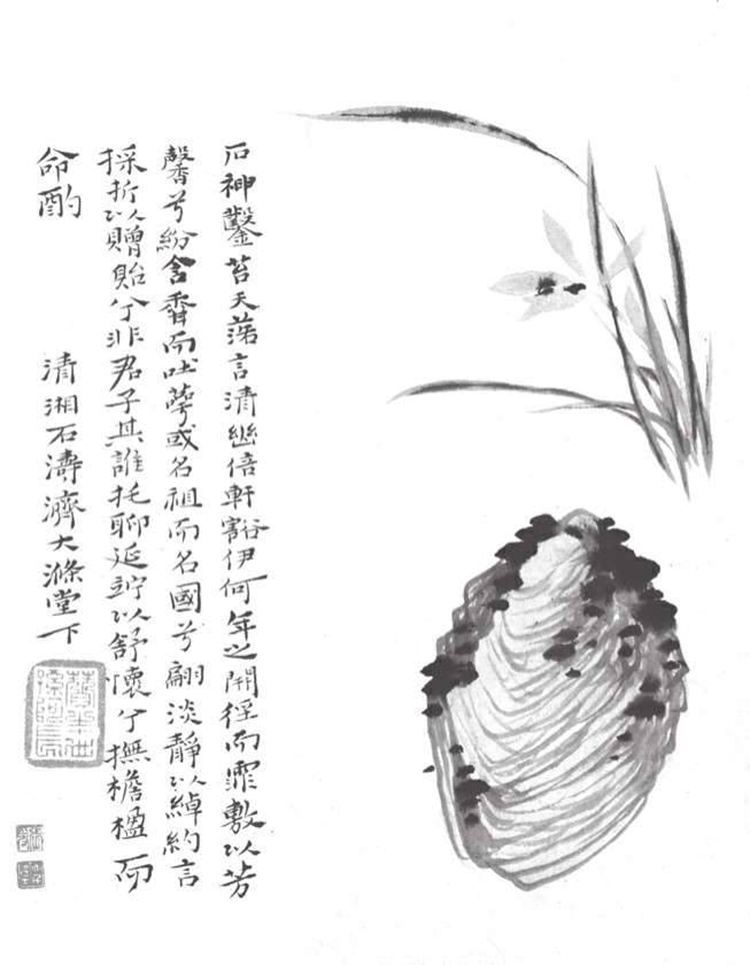 石神鑿苔天言清幽倍軒豁伊何年之開徑而霏敷以芳
馨兮紛含香而吐萼或名祖而名國兮翩淡靜以綽約言
採折以贈貽兮非君子其誰托聊延竚以舒懷兮撫檐楹而
命酌
清湘石濤濟大滌堂下